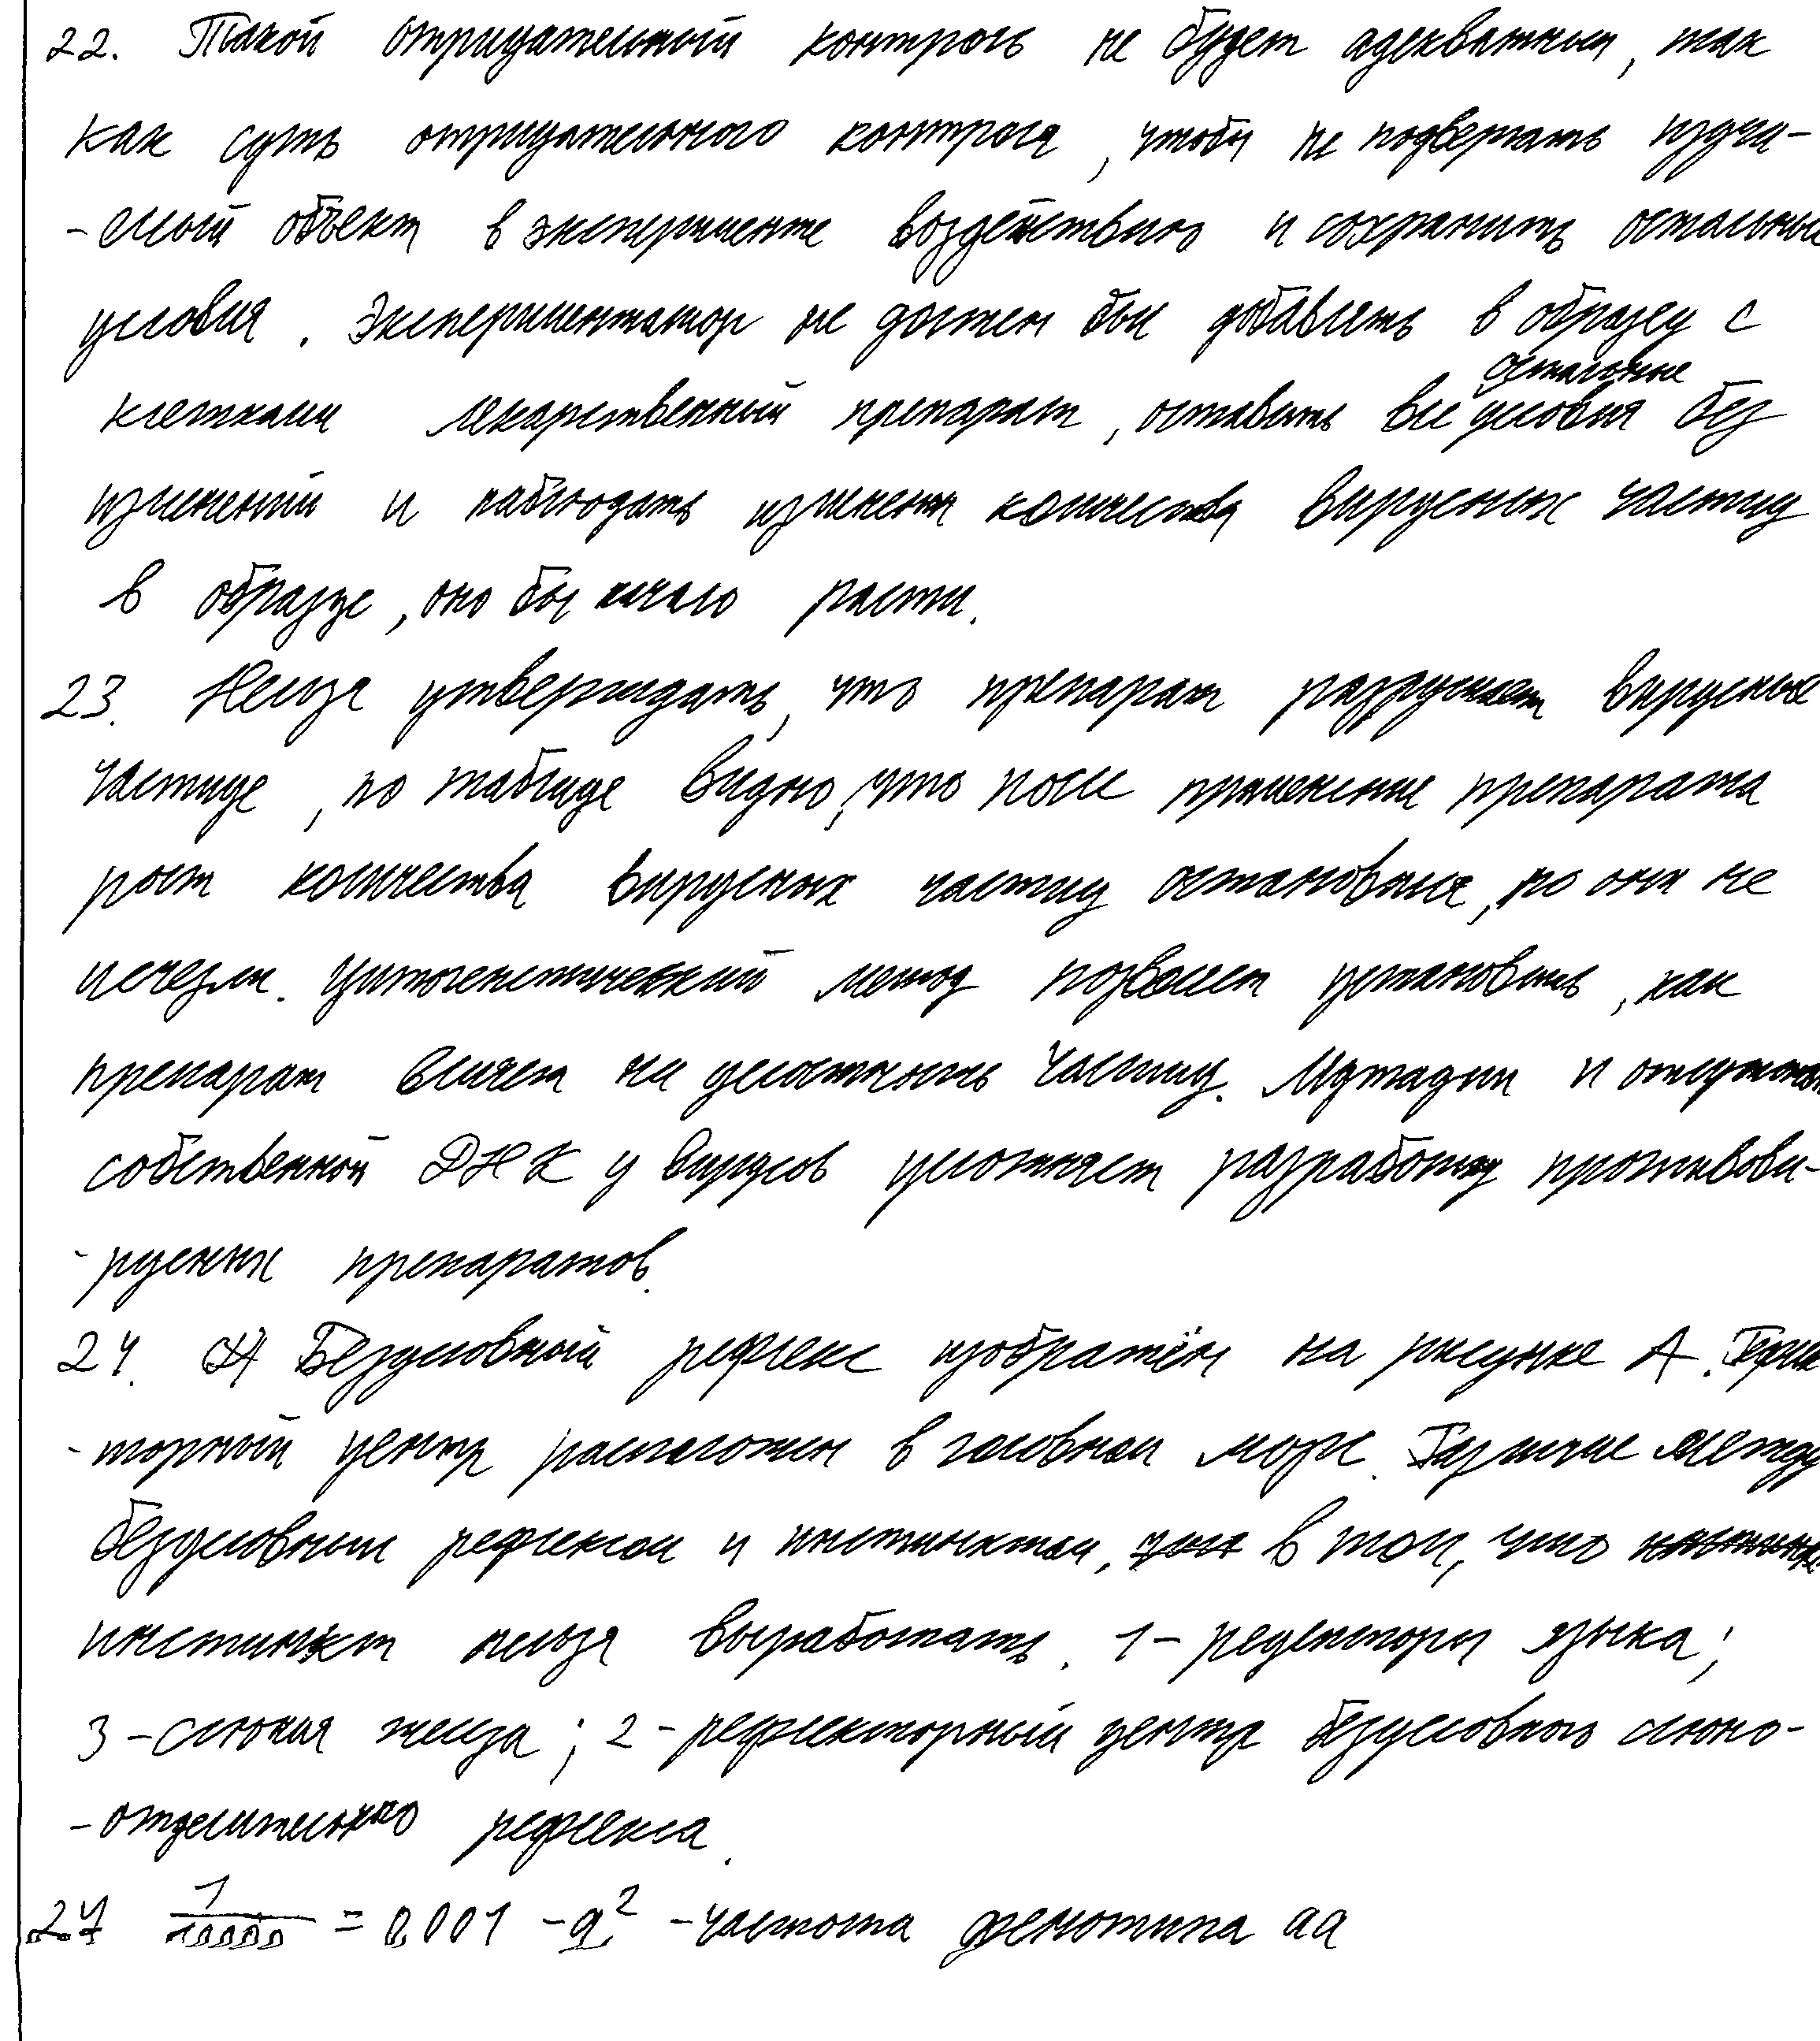 22. Такой отрицательный контроль не будет адекватным, так
как суть отрицательного контроля, чтобы не подвергать изуча-
-емый объект в эксперименте воздействию и сохранить остальные
условия. Экспериментатор не должен был добавлять в образец с
клетками лекарственный препарат, оставить все остальные условия без
изменений и наблюдать изменения количества вирусных частиц
в образце, оно бы начало расти.
23. Нельзя утверждать, что препарат разрушает вирусные
частицы, по таблице видно, что после применения препарата
рост количества вирусных частиц остановился, но они не
исчезли. Цитогенетический метод позволяет установить, как
препарат влияет на целостность частиц. Мутации и отсутствие
собственной ДНК у вирусов усложняет разработку противови-
-русных препаратов.
24. Безусловный рефлекс изображён на рисунке А.
-торный центр расположен в головном мозге. Различие между
безусловным рефлексом и инстинктом, в том, что
инстинкт нельзя выработать. 1 - рецепторы языка;
3 - слюнная железа; 2 - рефлекторный центр безусловного слюно-
-отделительного рефлекса.
27 1/10000 = 0,001 - q² - частота фенотипа аа